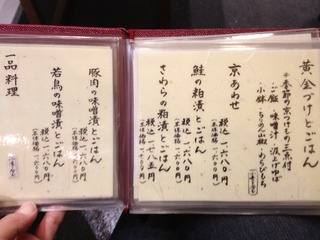 黄金づけとごはん
＊季節の京つけもの三点付
ご飯 味噌汁 汲上げゆば
小鉢 ちりめん山椒 わらびもち
京あわせ
税込 一六八〇円
鮭の粕漬とごはん
税込 一六八〇円
さわらの粕漬とごはん
税込 一七八五円
豚肉の味噌漬とごはん
税込 一六八〇円
若鳥の味噌漬とごはん
税込 一六八〇円
一品料理